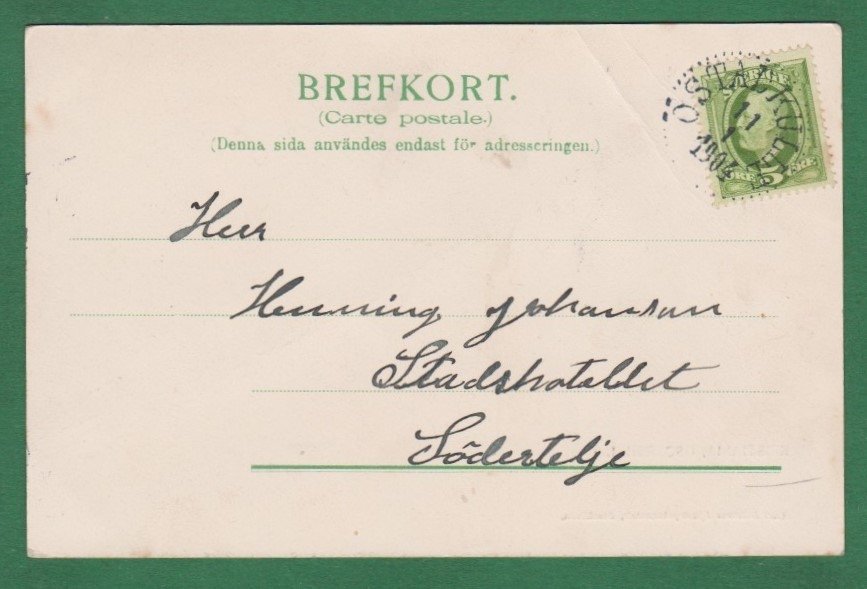 BREFKORT.
(Carte postale.)
(Denna sida användes endast för adresseringen.)
11
1
1904
5
Herr
Henning Johanson
Stadshotellet
Södertelje